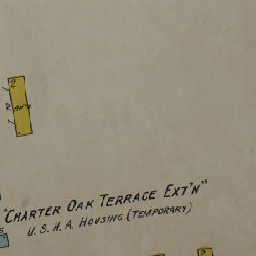 2
"CHARTER OAK TERRACE EXT'N"
U.S.H.A. HOUSING (TEMPORARY)
2